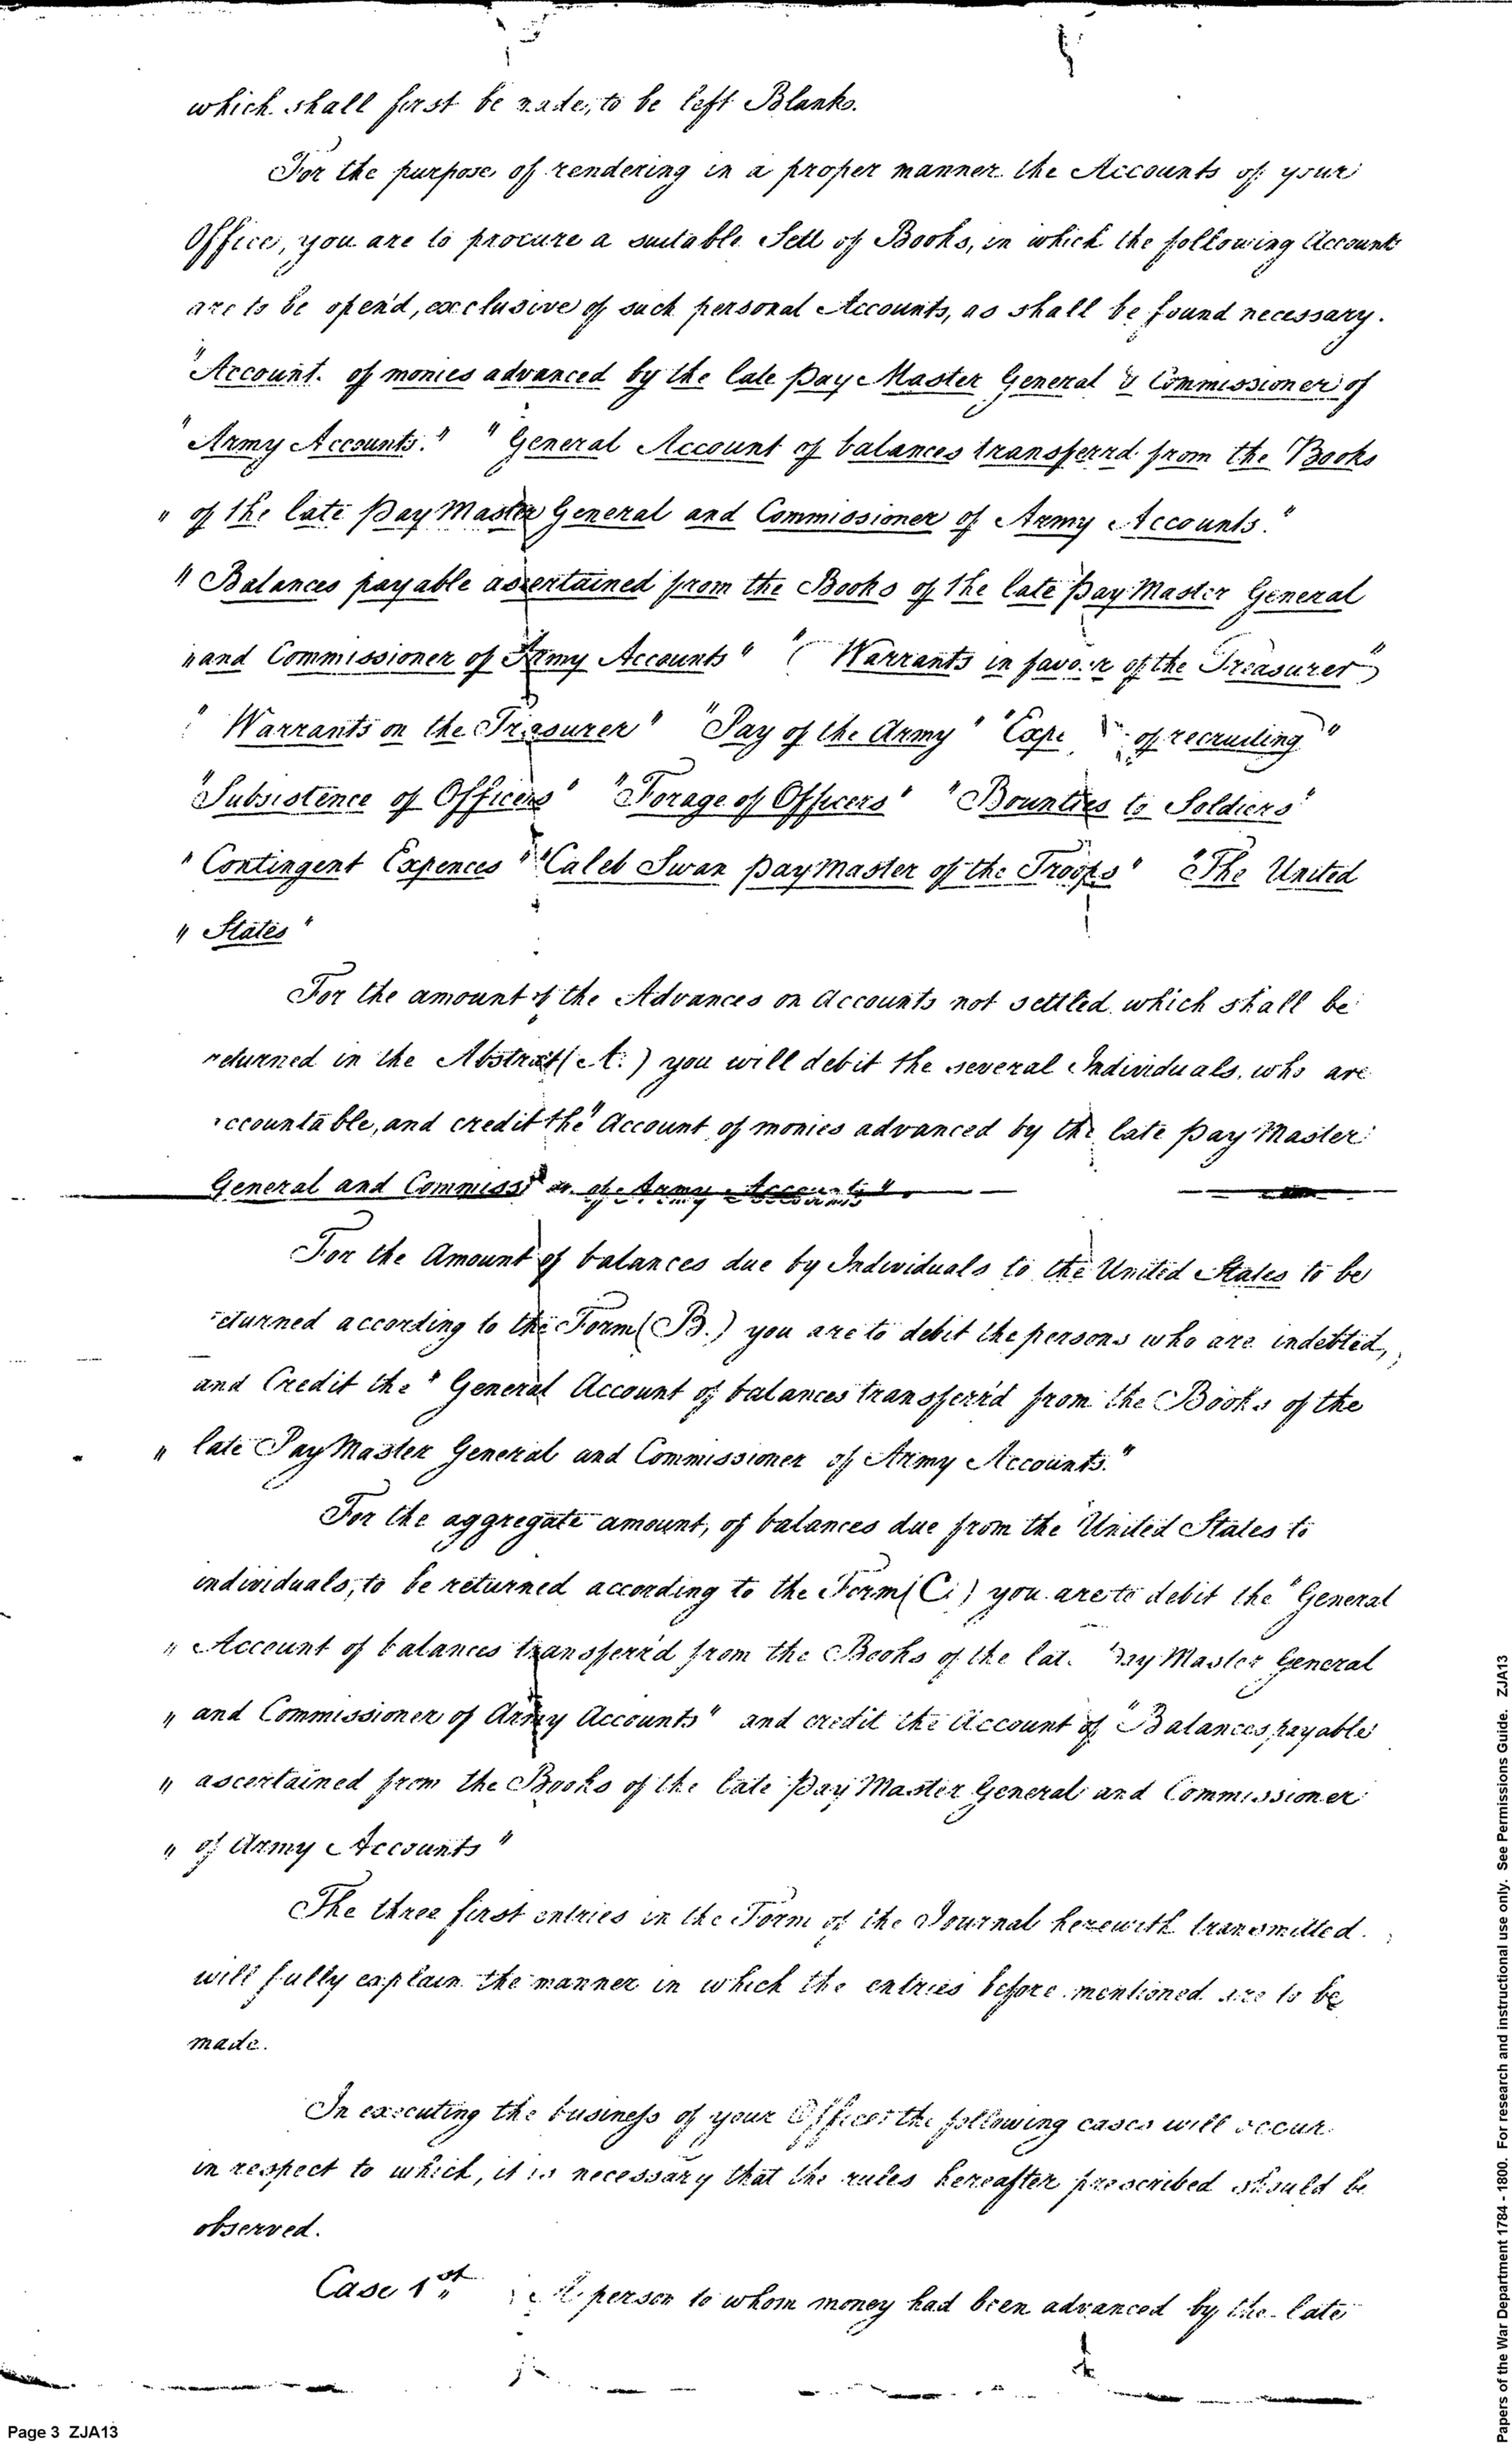 which shall first be made, to be left Blank.
For the purpose of rendering in a proper manner the Accounts of your
Office, you are to procure a suitable Sett of Books, in which the following Accounts
are to be open'd, exclusive of such personal Accounts, as shall be found necessary.
"Account. of monies advanced by the late Pay Master General & Commissioner of
"Army Accounts." "General Account of balances transferrd from the Books
" of the late Pay Master General and Commissioner of Army Accounts."
" Balances payable ascertained from the Books of the late Pay Master General
" and Commissioner of Army Accounts" "( Warrants in favour of the Treasurer")
" Warrants on the Treasurer" "Pay of the Army" "Expe of recruiting"
"Subsistence of Officers" "Forage of Officers" "Bounties to Soldiers"
" Contingent Expences" "Caleb Swan paymaster of the Troops" "The United
" States"
For the amount of the Advances on Accounts not settled which shall be
returned in the Abstract (A.) you will debit the several Individuals. who are
accountable, and credit the "Account of monies advanced by the late Pay Master
General and Commissr. of Army Accounts".
For the Amount of balances due by Individuals to the United States to be
returned according to the Form (B.) you are to debit the persons who are indebted,
and Credit the "General Account of balances transferr'd from the Books of the
" late Pay Master General and Commissioner of Army Accounts."
For the aggregate amount, of balances due from the United States to
individuals, to be returned according to the Form (C.) you are to debit the "General
" Account of balances transferr'd from the Books of the late Pay Master General
" and Commissioner of Army Accounts" and credit the Account of "Balances payable
" ascertained from the Books of the late Pay Master General and Commissioner
" of Army Accounts"
The three first entries in the Form of the Journal herewith transmitted.
will fully explain the manner in which the entries before mentioned are to be
made.
In executing the business of your Office the following cases will occur
in respect to which, it is necessary that the rules hereafter prescribed should be
observed.
Case 1st A person to whom money had been advanced by the late
Page 3 ZJA13
Papers of the War Department 1784 - 1800. For research and instructional use only. See Permissions Guide. ZJA13